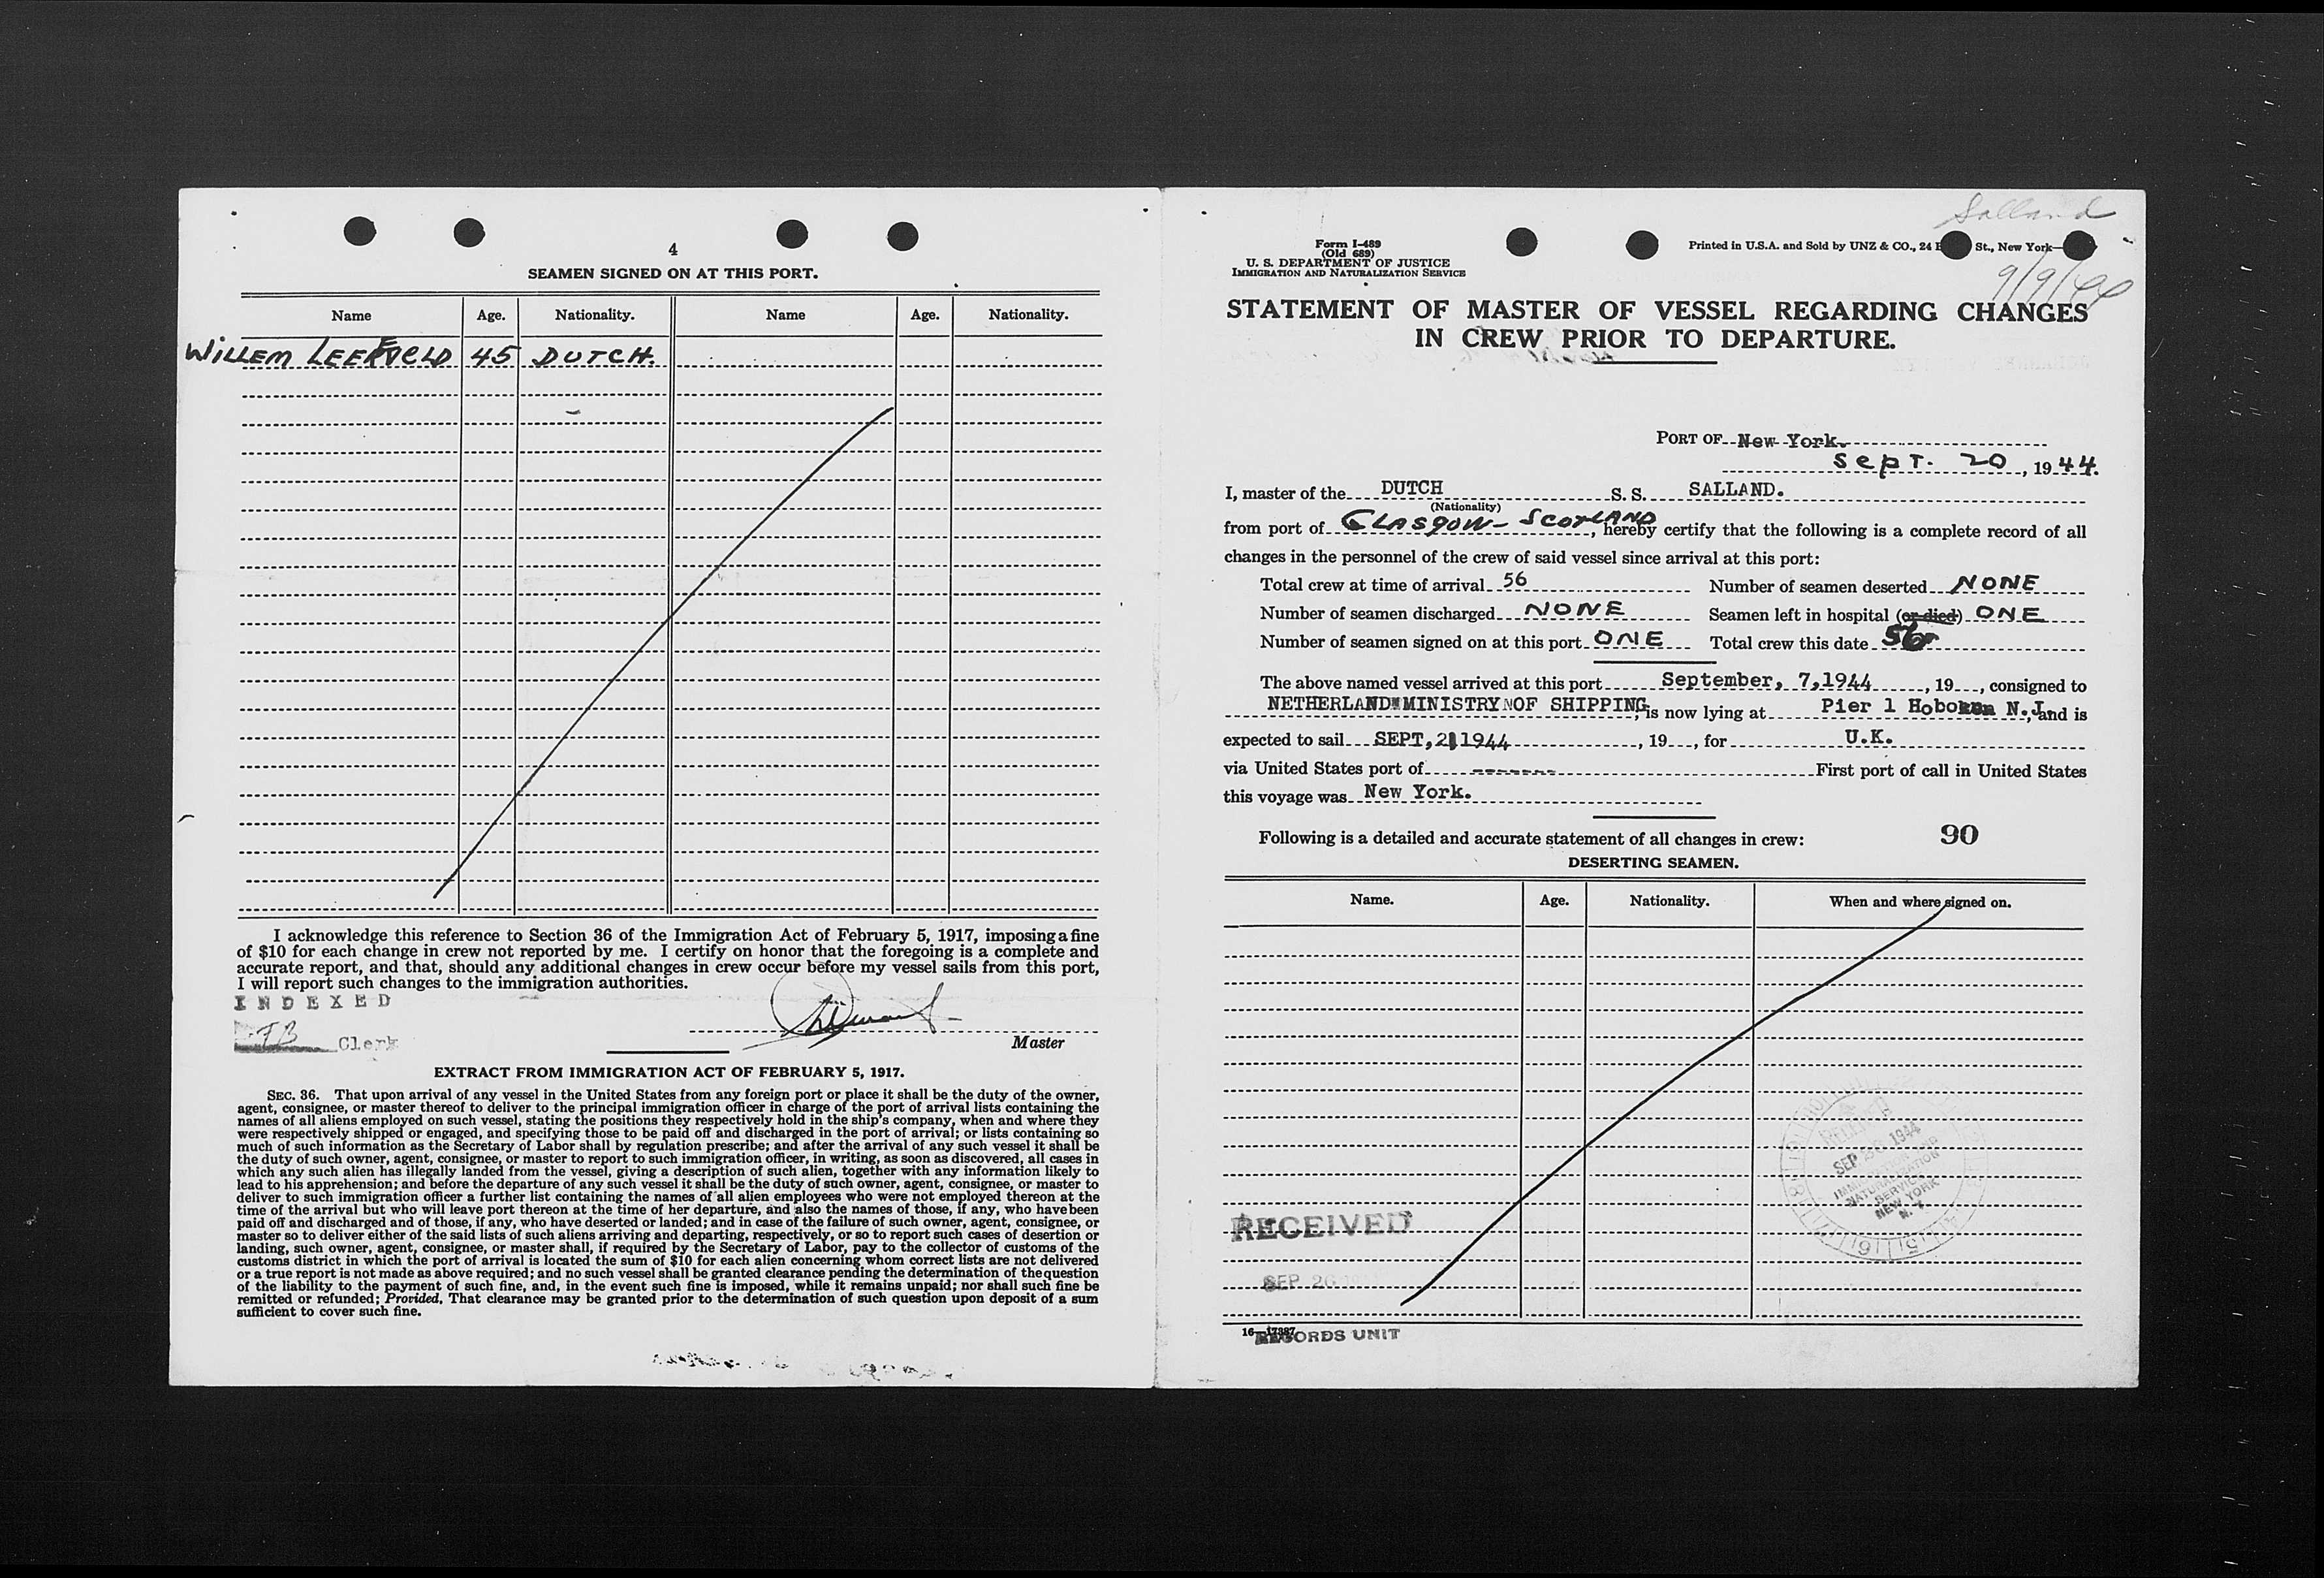 4
SEAMEN SIGNED ON AT THIS PORT.
Name Age. Nationality. Name Age. Nationality.
WILLEM 45 DUTCH.
I acknowledge this reference to Section 36 of the Immigration Act of February 5, 1917, imposing a fine
of $10 for each change in crew not reported by me. I certify on honor that the foregoing is a complete and
accurate report, and that, should any additional changes in crew occur before my vessel sails from this port,
I will report such changes to the immigration authorities.
INDEXED
JB Clerk
Master
EXTRACT FROM IMMIGRATION ACT OF FEBRUARY 5, 1917.
SEC. 36. That upon arrival of any vessel in the United States from any foreign port or place it shall be the duty of the owner,
agent, consignee, or master thereof to deliver to the principal immigration officer in charge of the port of arrival lists containing the
names of all aliens employed on such vessel, stating the positions they respectively hold in the ship's company, when and where they
were respectively shipped or engaged, and specifying those to be paid off and discharged in the port of arrival; or lists containing so
much of such information as the Secretary of Labor shall by regulation prescribe; and after the arrival of any such vessel it shall be
the duty of such owner, agent, consignee, or master to report to such immigration officer, in writing, as soon as discovered, all cases in
which any such alien has illegally landed from the vessel, giving a description of such alien, together with any information likely to
lead to his apprehension; and before the departure of any such vessel it shall be the duty of such owner, agent, consignee, or master to
deliver to such immigration officer a further list containing the names of all alien employees who were not employed thereon at the
time of the arrival but who will leave port thereon at the time of her departure, and also the names of those, if any, who have been
paid off and discharged and of those, if any, who have deserted or landed; and in case of the failure of such owner, agent, consignee, or
master so to deliver either of the said lists of such aliens arriving and departing, respectively, or so to report such cases of desertion or
landing, such owner, agent, consignee, or master shall, if required by the Secretary of Labor, pay to the collector of customs of the
customs district in which the port of arrival is located the sum of $10 for each alien concerning whom correct lists are not delivered
or a true report is not made as above required; and no such vessel shall be granted clearance pending the determination of the question
of the liability to the payment of such fine, and, in the event such fine is imposed, while it remains unpaid; nor shall such fine be
remitted or refunded; Provided, That clearance may be granted prior to the determination of such question upon deposit of a sum
sufficient to cover such fine.
Salland
Form I-489
(Old 689)
U. S. DEPARTMENT OF JUSTICE
IMMIGRATION AND NATURALIZATION SERVICE
Printed in U.S.A. and Sold by UNZ & CO., 24 St., New York
9/9/44
STATEMENT OF MASTER OF VESSEL REGARDING CHANGES
IN CREW PRIOR TO DEPARTURE.
PORT OF New York.
Sept. 20, 1944.
I, master of the DUTCH S. S. SALLAND.
(Nationality)
from port of GLASGOW - SCOTLAND, hereby certify that the following is a complete record of all
changes in the personnel of the crew of said vessel since arrival at this port:
Total crew at time of arrival 56 Number of seamen deserted NONE
Number of seamen discharged NONE Seamen left in hospital (or died) ONE
Number of seamen signed on at this port ONE Total crew this date 56
The above named vessel arrived at this port September, 7,1944, 19 , consigned to
NETHERLAND MINISTRY OF SHIPPING, is now lying at Pier 1 Hoboken N.J., and is
expected to sail SEPT,21 1944, 19 , for U.K.
via United States port of ------- First port of call in United States
this voyage was New York.
Following is a detailed and accurate statement of all changes in crew: 90
DESERTING SEAMEN.
Name. Age. Nationality. When and where signed on.
SEP 1944
IMMIGRATION
NATURALIZATION
SERVICE
NEW YORK
N. Y.
RECEIVED
SEP 26
16—17387
RECORDS UNIT